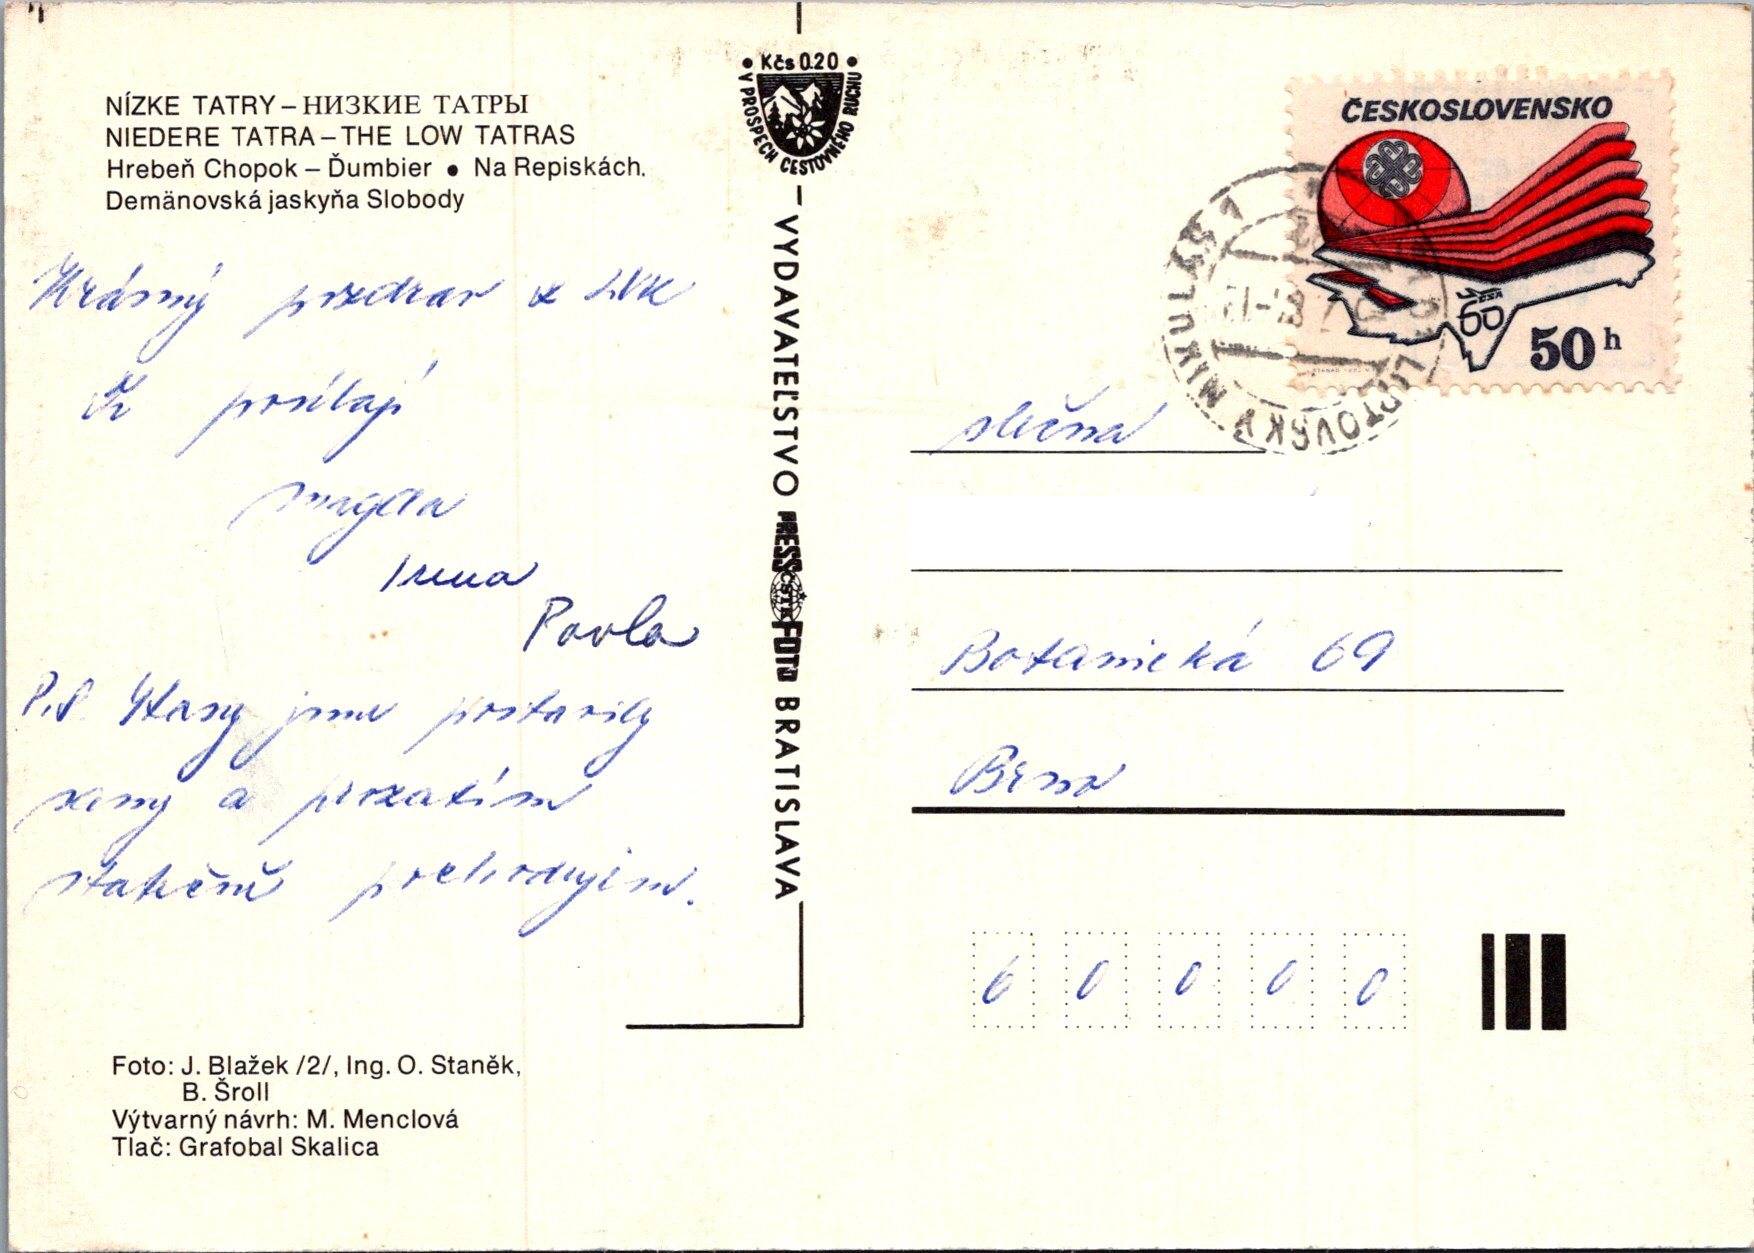 NÍZKE TATRY – НИЗКИЕ ТАТРЫ
NIEDERE TATRA – THE LOW TATRAS
Hrebeň Chopok – Ďumbier • Na Repiskách.
Demänovská jaskyňa Slobody
Krásný pozdrav z LVK
Ti posílají
Magda
Irena
Pavla
P.S. Stany jsme postavily
samy a prozatím
statečně
• Kčs 0.20 •
V PROSPECH CESTOVNÉHO RUCHU
VYDAVATEĽSTVO PRESSFOTO BRATISLAVA
ČSTK
ČESKOSLOVENSKO
ČSA
60
50 h
LIPTOVSKÝ MIKULÁŠ 1
slečna
Botanická 69
Brno
6 0 0 0 0
Foto: J. Blažek /2/, Ing. O. Staněk,
B. Šroll
Výtvarný návrh: M. Menclová
Tlač: Grafobal Skalica